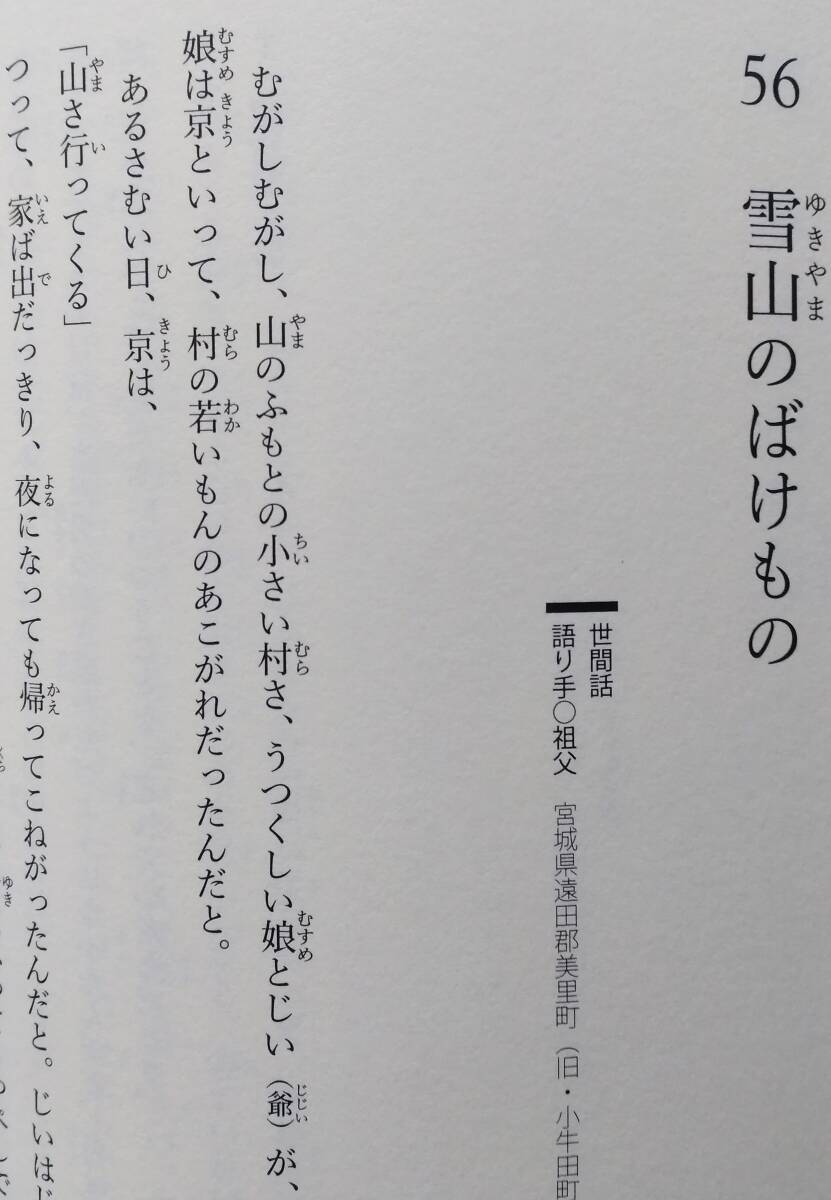 56 雪山のばけもの
世間話
語り手○祖父 宮城県遠田郡美里町（旧・小牛田町
むがしむがし、山のふもとの小さい村さ、うつくしい娘とじい（爺）が、
娘は京といって、村の若いもんのあこがれだったんだと。
あるさむい日、京は、
「山さ行ってくる」
つって、家ば出だっきり、夜になっても帰ってこねがったんだと。じいはじ